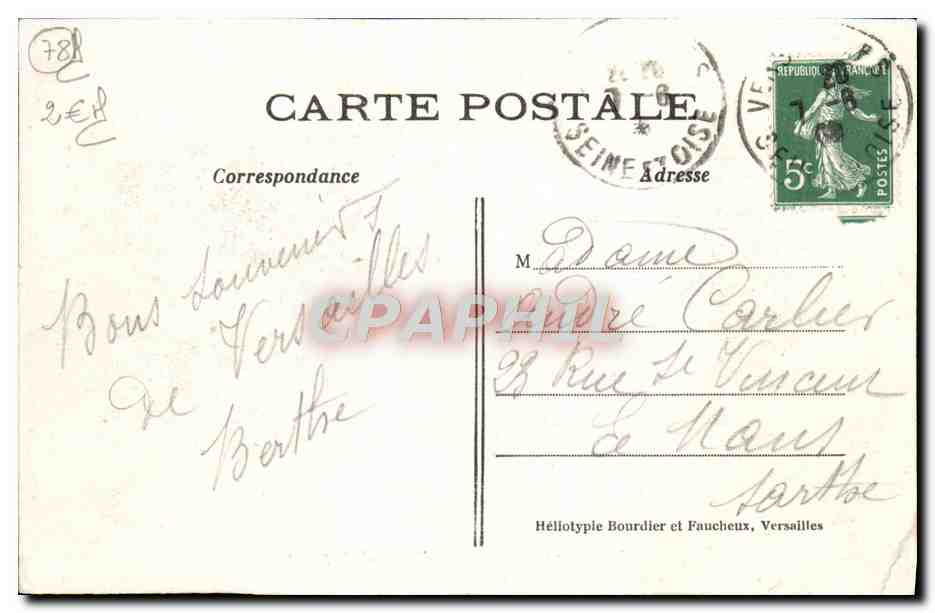 78
2€
CARTE POSTALE
Correspondance
Adresse
SEINE ET OISE
7 -6
20
7 -6
09
REPUBLIQUE FRANÇAISE
5c
POSTES
Bons souvenirs
de Versailles
Berthe
Madame
André Carlier
23 Rue St Vincent
Le Mans
Sarthe
CPAPHIL
Héliotypie Bourdier et Faucheux, Versailles